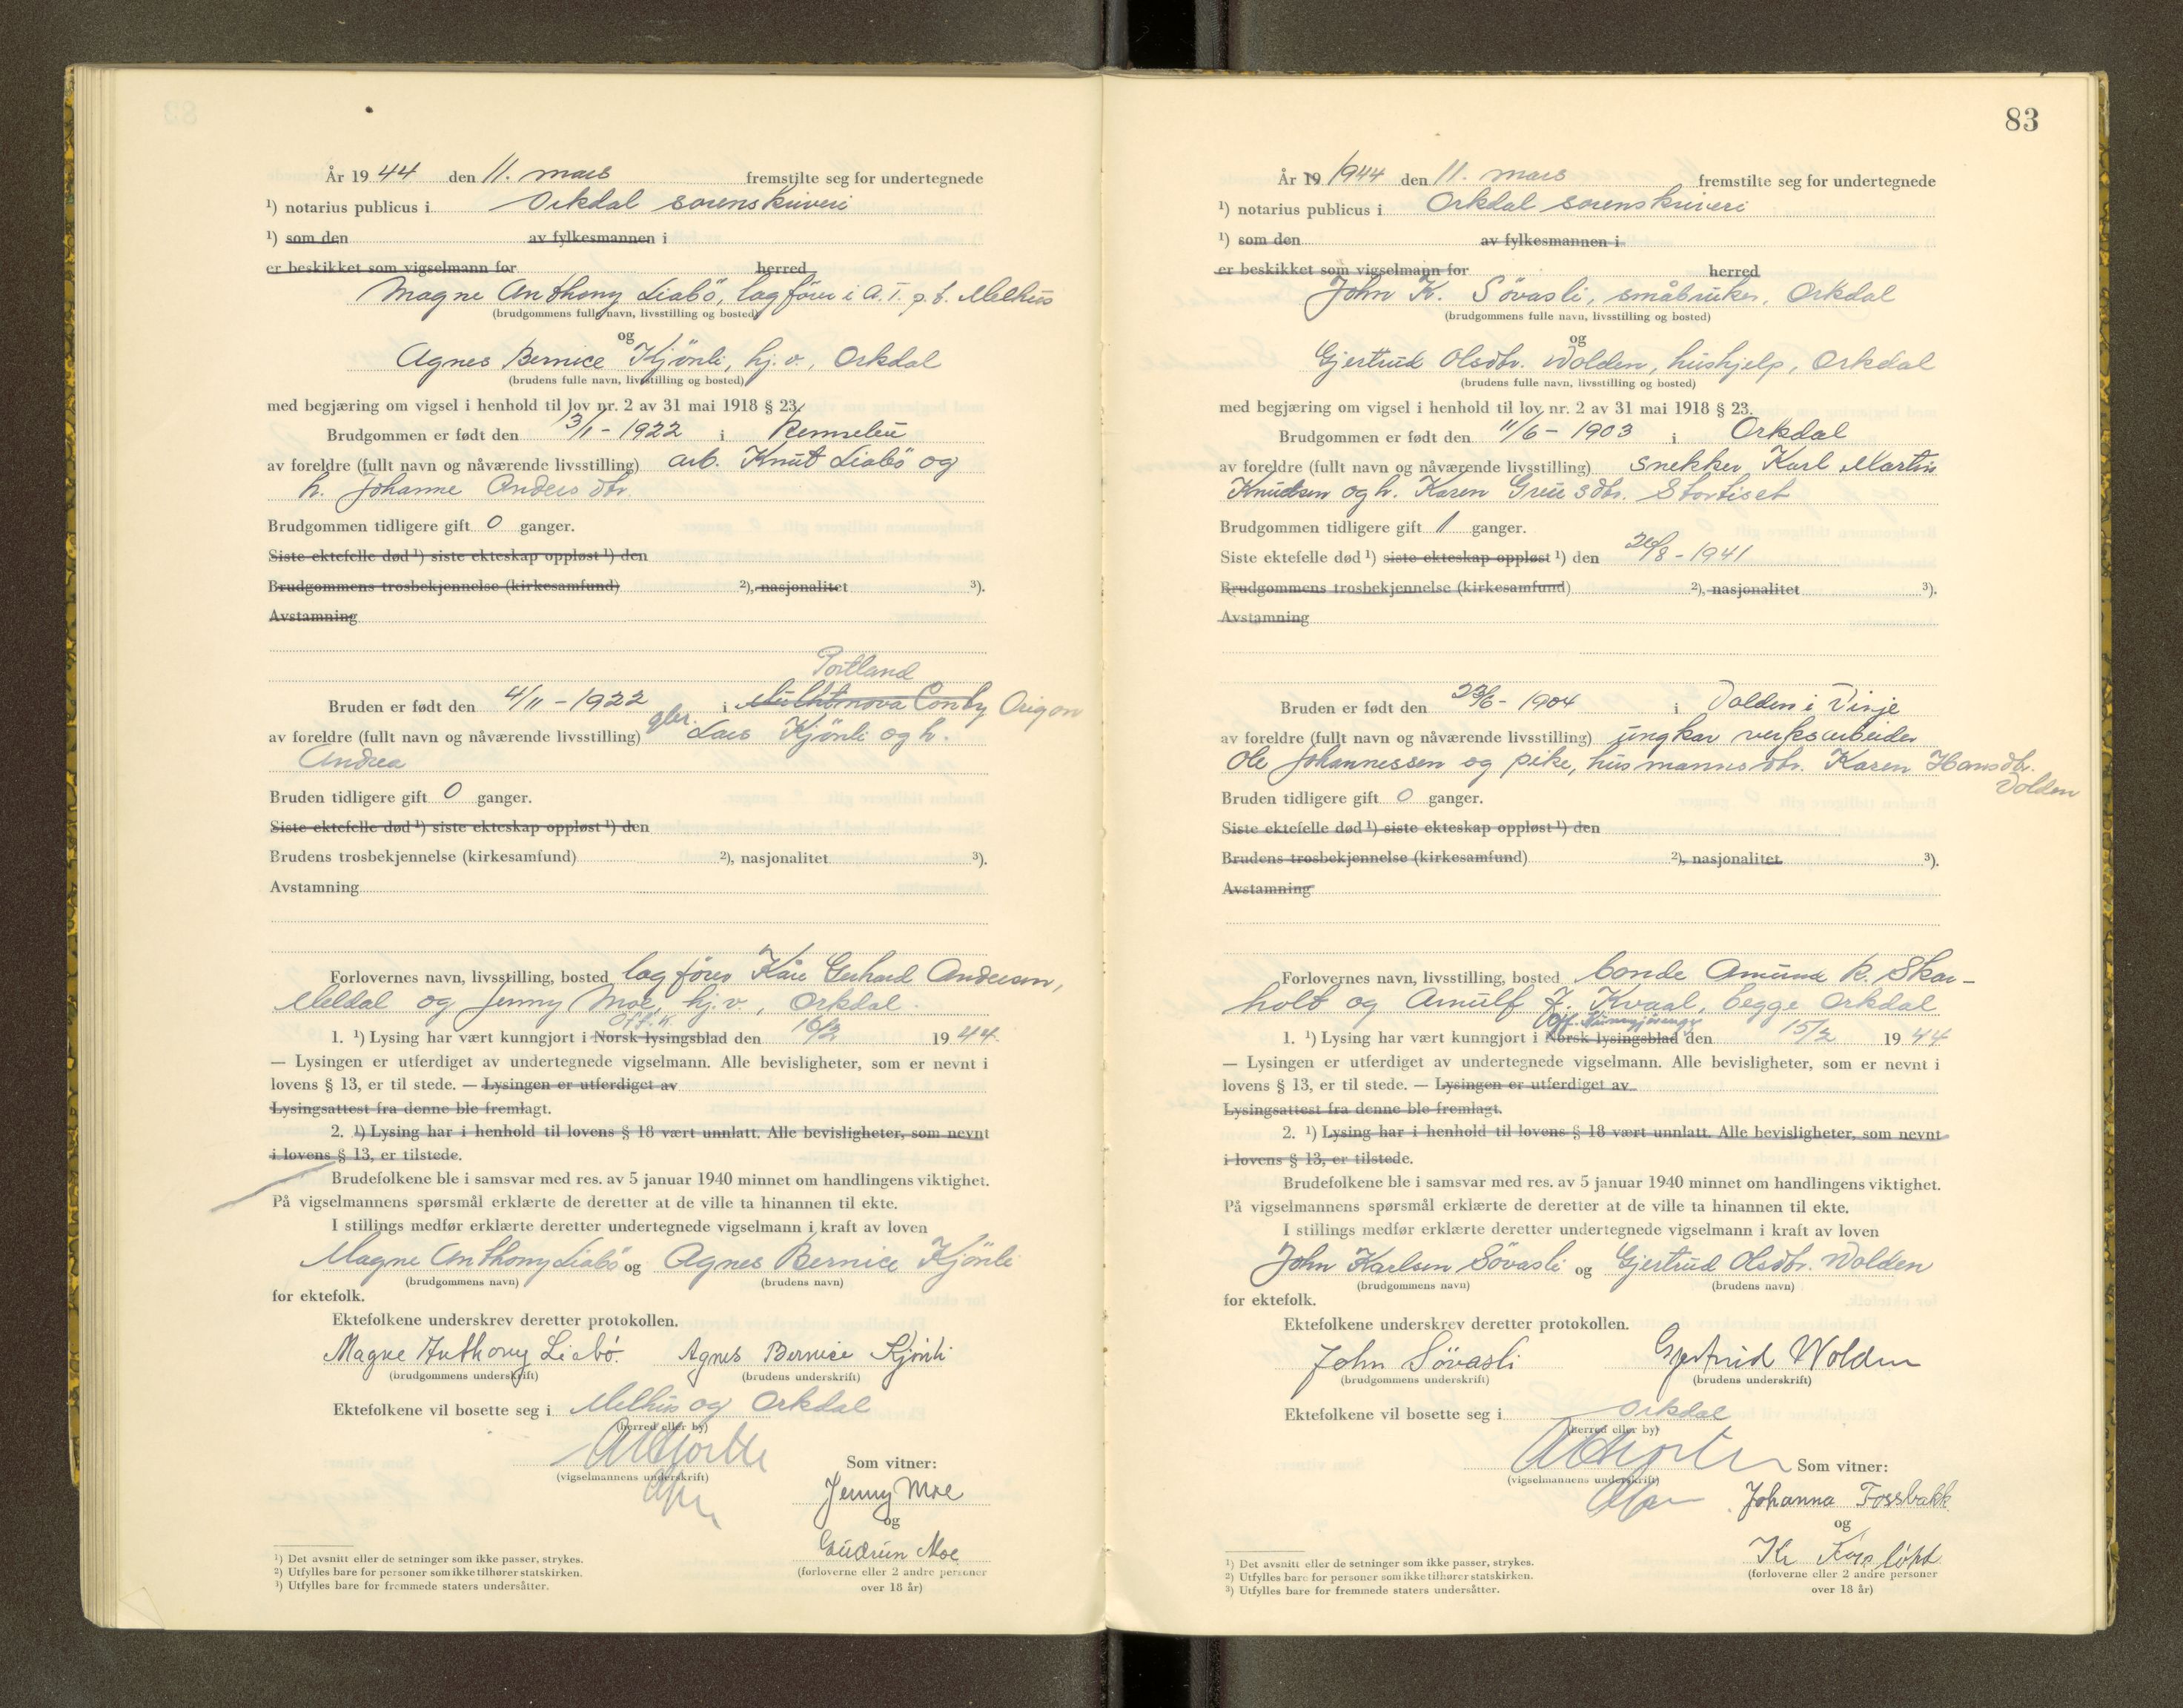 År 1944 den 11. mars fremstilte seg for undertegnede
¹) notarius publicus i Orkdal sorenskriveri
¹) som den av fylkesmannen i
er beskikket som vigselmann for herred
Magne Anthony Liabö, lagförer i A.T. p.t. Melhus
(brudgommens fulle navn, livsstilling og bosted)
og
Agnes Bernice Kjönli, hj.v., Orkdal
(brudens fulle navn, livsstilling og bosted)
med begjæring om vigsel i henhold til lov nr. 2 av 31 mai 1918 § 23.
Brudgommen er født den 13/1 - 1922 i Rennebu
av foreldre (fullt navn og nåværende livsstilling) arb. Knut Liabö og
h. Johanne Andersdtr.
Brudgommen tidligere gift 0 ganger.
Siste ektefelle død ¹) siste ekteskap oppløst ¹) den
Brudgommens trosbekjennelse (kirkesamfund) ²), nasjonalitet ³).
Avstamning
Portland
Bruden er født den 4/11 - 1922 i Conty Origon
av foreldre (fullt navn og nåværende livsstilling) gbr. Lars Kjönli og h.
Andrea
Bruden tidligere gift 0 ganger.
Siste ektefelle død ¹) siste ekteskap oppløst ¹) den
Brudens trosbekjennelse (kirkesamfund) ²), nasjonalitet ³).
Avstamning
Forlovernes navn, livsstilling, bosted lagförer Kåre Gerhard Andersen,
Meldal og Jenny Moe, hj.v., Orkdal.
Off. k.
1. ¹) Lysing har vært kunngjort i Norsk lysingsblad den 16/2 1944.
— Lysingen er utferdiget av undertegnede vigselmann. Alle bevisligheter, som er nevnt i
lovens § 13, er til stede. — Lysingen er utferdiget av
Lysingsattest fra denne ble fremlagt.
2. ¹) Lysing har i henhold til lovens § 18 vært unnlatt. Alle bevisligheter, som nevnt
i lovens § 13, er tilstede.
Brudefolkene ble i samsvar med res. av 5 januar 1940 minnet om handlingens viktighet.
På vigselmannens spørsmål erklærte de deretter at de ville ta hinannen til ekte.
I stillings medfør erklærte deretter undertegnede vigselmann i kraft av loven
Magne Anthony Liabö og Agnes Bernice Kjönli
(brudgommens navn) (brudens navn)
for ektefolk.
Ektefolkene underskrev deretter protokollen.
Magne Anthony Liabö. Agnes Bernice Kjönli
(brudgommens underskrift) (brudens underskrift)
Ektefolkene vil bosette seg i Melhus og Orkdal
(herred eller by)
(vigselmannens underskrift)
Som vitner:
Jenny Moe
og
Gudrun Moe
(forloverne eller 2 andre personer
over 18 år)
¹) Det avsnitt eller de setninger som ikke passer, strykes.
²) Utfylles bare for personer som ikke tilhører statskirken.
³) Utfylles bare for fremmede staters undersåtter.
83
År 19 1944 den 11. mars fremstilte seg for undertegnede
¹) notarius publicus i Orkdal sorenskriveri
¹) som den av fylkesmannen i
er beskikket som vigselmann for herred
John K. Sövasli, småbruker, Orkdal
(brudgommens fulle navn, livsstilling og bosted)
og
Gjertrud Olsdtr. Wolden, hushjelp, Orkdal
(brudens fulle navn, livsstilling og bosted)
med begjæring om vigsel i henhold til lov nr. 2 av 31 mai 1918 § 23.
Brudgommen er født den 11/6 - 1903 i Orkdal
av foreldre (fullt navn og nåværende livsstilling) snekker Karl Martin
Knudsen og h. Karen Storliset
Brudgommen tidligere gift 1 ganger.
Siste ektefelle død ¹) siste ekteskap oppløst ¹) den 26/8 - 1941
Brudgommens trosbekjennelse (kirkesamfund) ²), nasjonalitet ³).
Avstamning
Bruden er født den 23/6 - 1904 i Volden i Vinje
av foreldre (fullt navn og nåværende livsstilling) ungkar verksarbeider
Ole Johannessen og pike, husmannsdtr. Karen Hansdtr.
Volden
Bruden tidligere gift 0 ganger.
Siste ektefelle død ¹) siste ekteskap oppløst ¹) den
Brudens trosbekjennelse (kirkesamfund) ²), nasjonalitet ³).
Avstamning
Forlovernes navn, livsstilling, bosted bonde Amund K. Skar-
holt og Arnulf J. Kvaal, begge Orkdal
Off. Kunngjöringer
1. ¹) Lysing har vært kunngjort i Norsk lysingsblad den 15/2 1944
— Lysingen er utferdiget av undertegnede vigselmann. Alle bevisligheter, som er nevnt i
lovens § 13, er til stede. — Lysingen er utferdiget av
Lysingsattest fra denne ble fremlagt.
2. ¹) Lysing har i henhold til lovens § 18 vært unnlatt. Alle bevisligheter, som nevnt
i lovens § 13, er tilstede.
Brudefolkene ble i samsvar med res. av 5 januar 1940 minnet om handlingens viktighet.
På vigselmannens spørsmål erklærte de deretter at de ville ta hinannen til ekte.
I stillings medfør erklærte deretter undertegnede vigselmann i kraft av loven
John Karlsen Sövasli og Gjertrud Olsdtr. Wolden
(brudgommens navn) (brudens navn)
for ektefolk.
Ektefolkene underskrev deretter protokollen.
John Sövasli Gjertrud Wolden
(brudgommens underskrift) (brudens underskrift)
Ektefolkene vil bosette seg i Orkdal
(herred eller by)
(vigselmannens underskrift)
Som vitner:
Johanna Fossbakk
og
Kr
(forloverne eller 2 andre personer
over 18 år)
¹) Det avsnitt eller de setninger som ikke passer, strykes.
²) Utfylles bare for personer som ikke tilhører statskirken.
³) Utfylles bare for fremmede staters undersåtter.